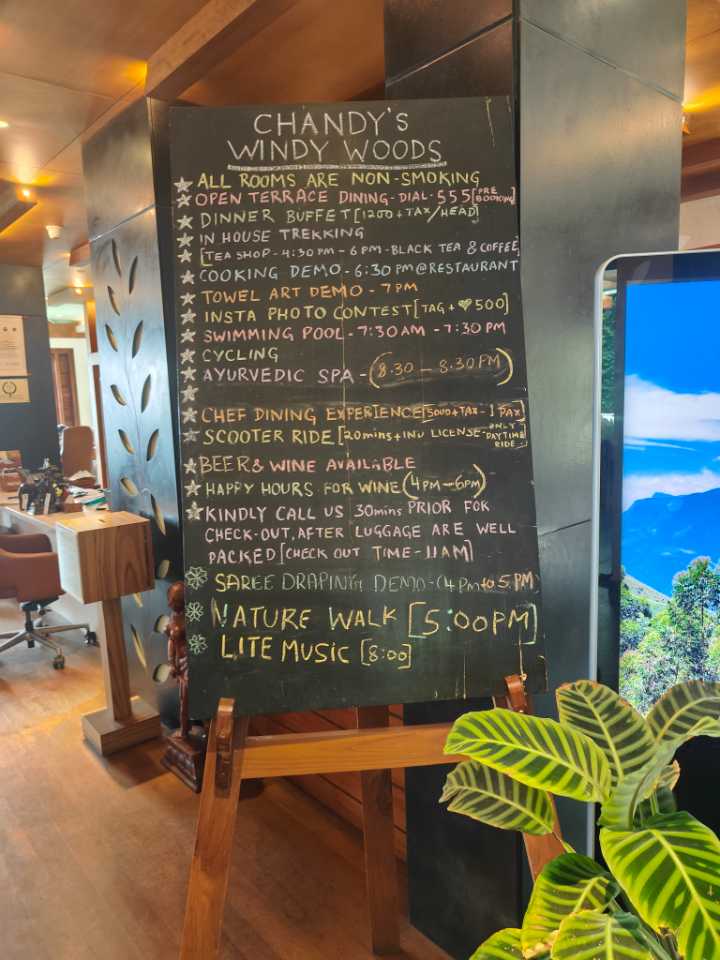 CHANDY'S
WINDY WOODS
ALL ROOMS ARE NON-SMOKING
OPEN TERRACE DINING-DIAL-555[PRE BOOKING]
DINNER BUFFET[1200+TAX/HEAD]
IN HOUSE TREKKING
[TEA SHOP-4:30PM-6PM-BLACK TEA & COFFEE
COOKING DEMO-6:30PM@RESTAURANT
TOWEL ART DEMO-7PM
INSTA PHOTO CONTEST[TAG+♥500]
SWIMMING POOL-7:30AM-7:30PM
CYCLING
AYURVEDIC SPA-(8.30-8.30PM)
CHEF DINING EXPERIENCE[5000+TAX-1PAX]
SCOOTER RIDE[20mins+IND LICENSE-ONLY DAYTIME RIDE]
BEER& WINE AVAILABLE
HAPPY HOURS FOR WINE(4PM-6PM)
KINDLY CALL US 30mins PRIOR FOR
CHECK-OUT,AFTER LUGGAGE ARE WELL
PACKED[CHECK OUT TIME-11AM]
SAREE DRAPING DEMO-(4Pmto5PM)
NATURE WALK [5:00PM]
LITE MUSIC [8:00]